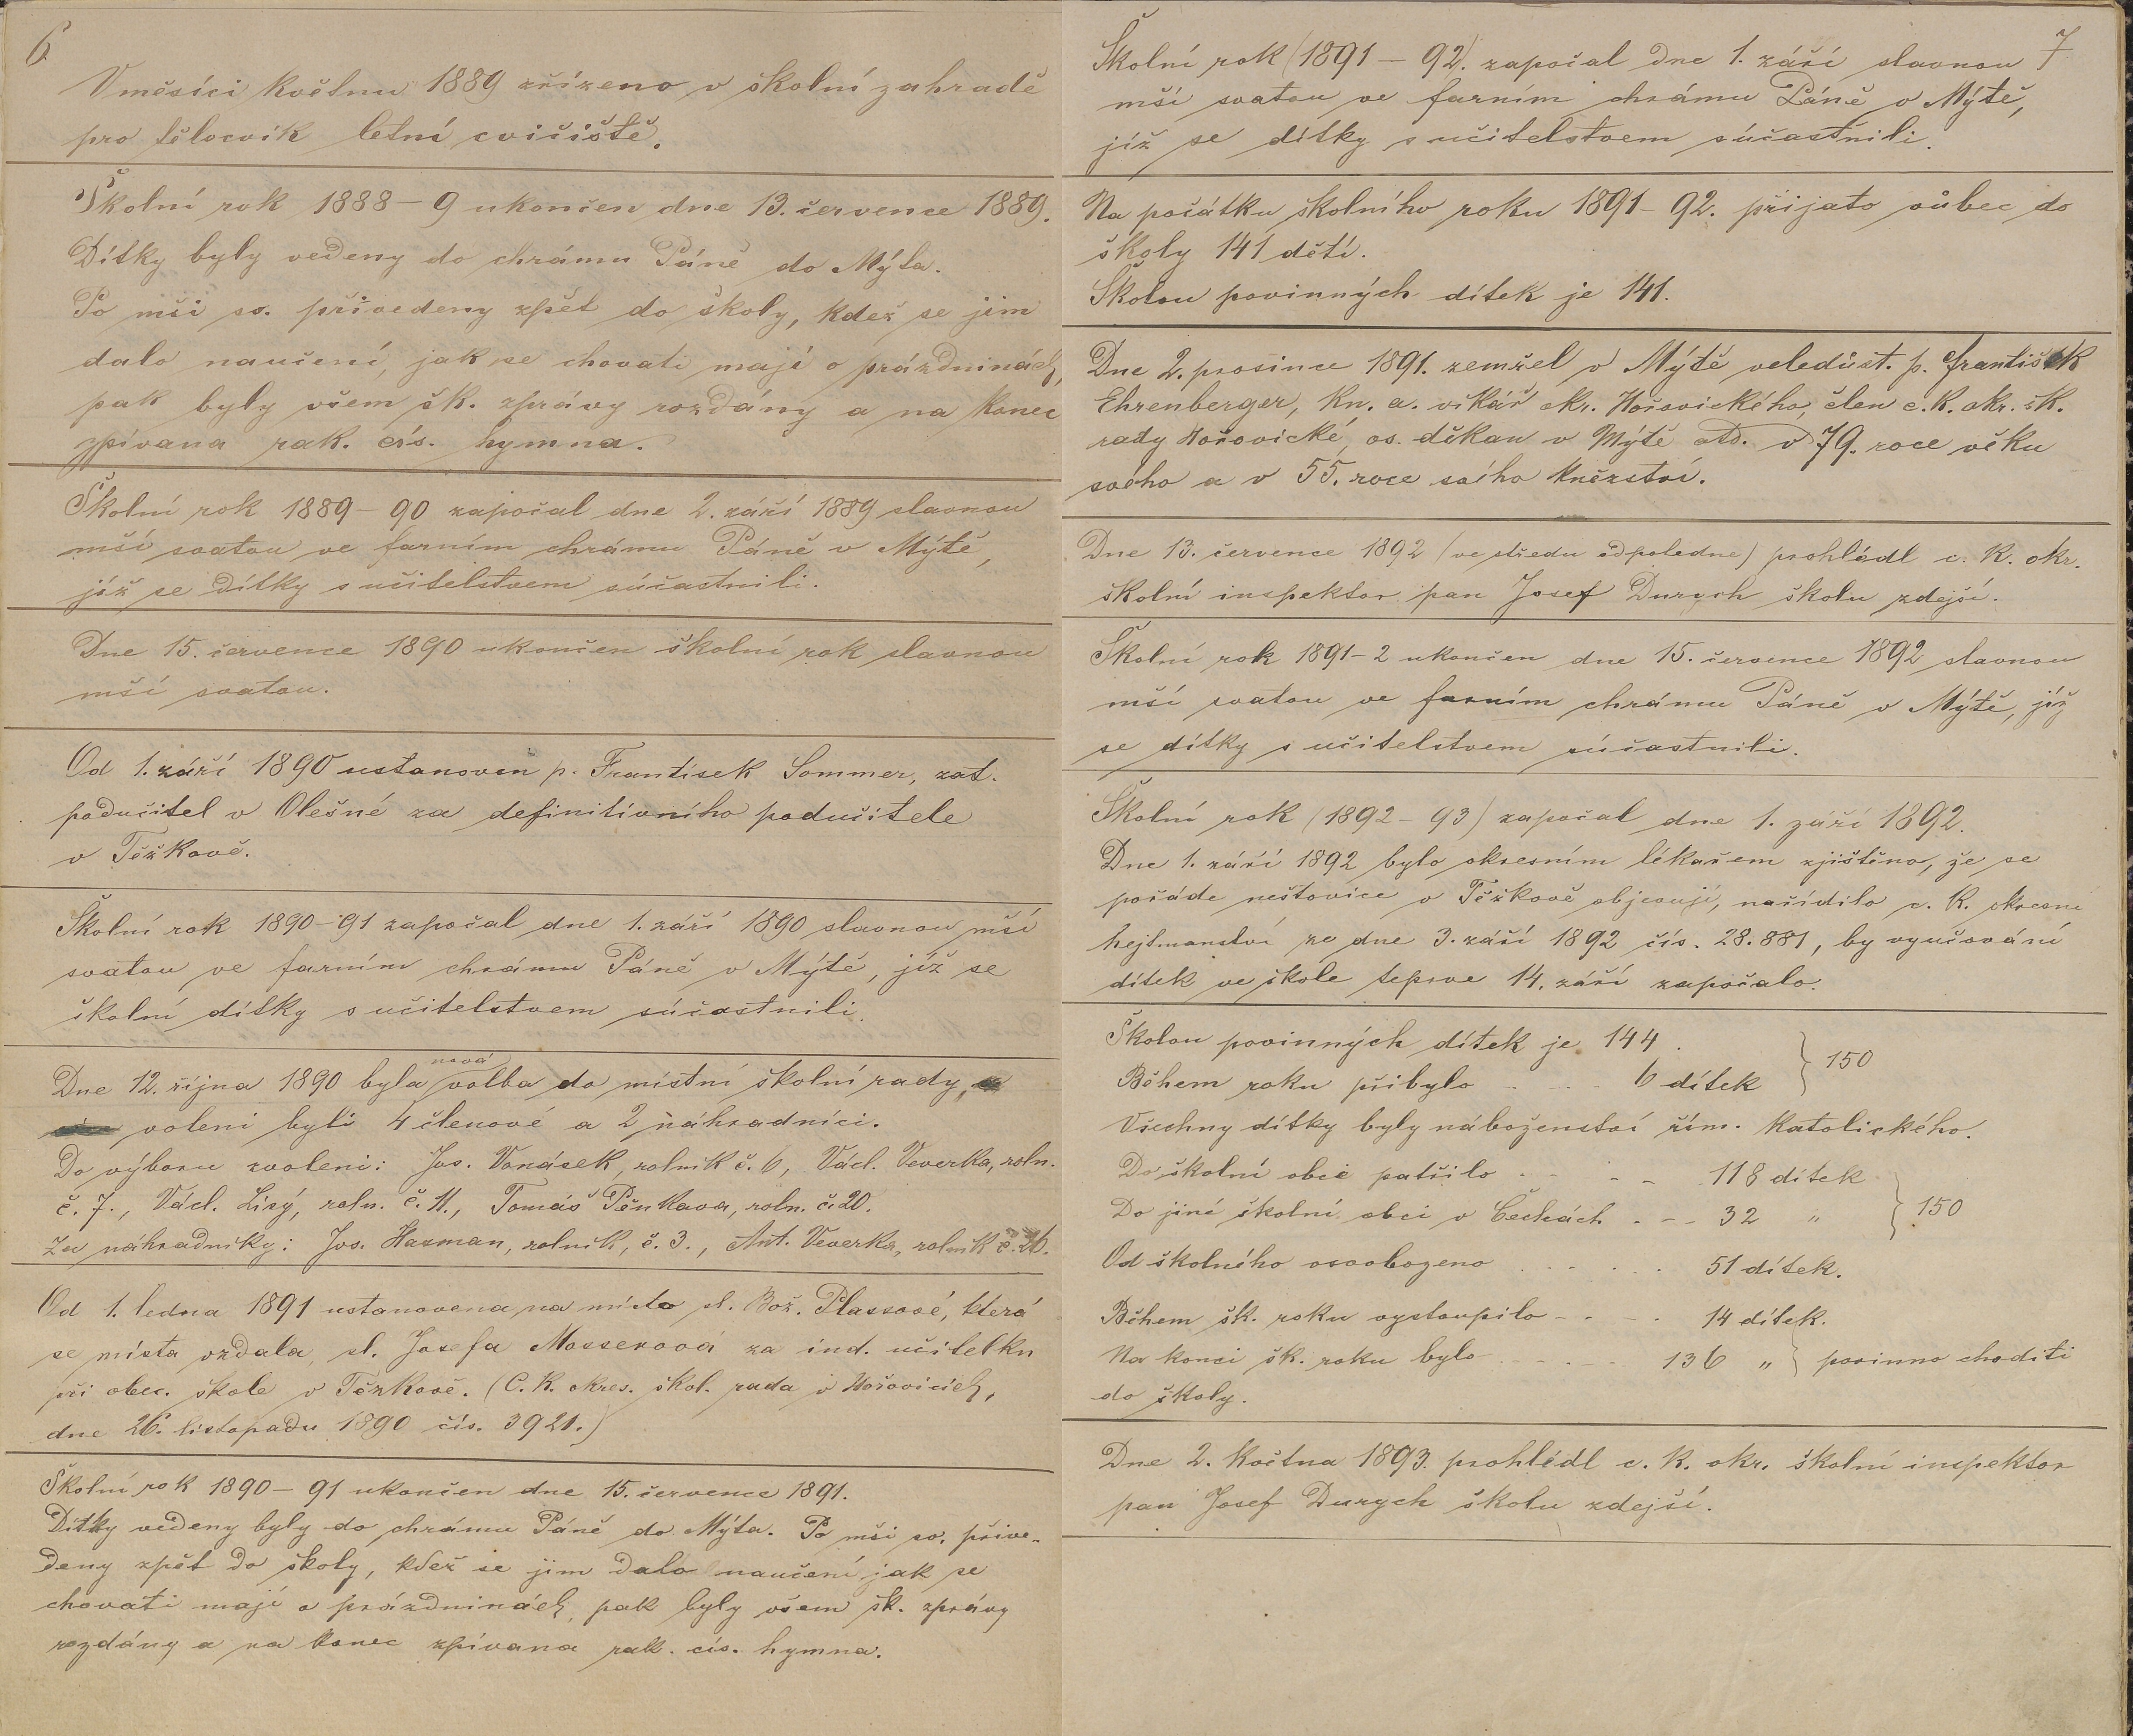 6
V měsíci květnu 1889 zřízeno v školní zahradě
pro tělocvik letní cvičiště.
Školní rok 1888–9 ukončen dne 13. července 1889.
Dítky byly vedeny do chrámu Páně do Mýta.
Po mši sv. přivedeny zpět do školy, kdež se jim
dalo naučení, jak se chovati mají o prázdninách,
pak byly všem šk. zprávy rozdány a na konec
zpívana rak. cís. hymna.
Školní rok 1889–90 započal dne 2. září 1889 slavnou
mší svatou ve farním chrámu Páně v Mýtě,
jíž se dítky s učitelstvem súčastnili.
Dne 15. července 1890 ukončen školní rok slavnou
mší svatou.
Od 1. září 1890 ustanoven p. František Sommer, zat.
podučitel v Olešné za definitivního podučitele
v Těžkově.
Školní rok 1890–91 započal dne 1. září 1890 slavnou mší
svatou ve farním chrámu Páně v Mýtě, jíž se
školní dítky s učitelstvem súčastnili.
nová
Dne 12. října 1890 byla volba do místní školní rady,
voleni byli 4 členové a 2 náhradníci.
Do výboru zvoleni: Jos. Vonásek, rolník č. 6, Václ. Veverka, roln.
č. 7., Václ. Lisý, roln. č. 11., Tomáš Pěnkava, roln. č. 20.
Za náhradníky: Jos. Hasman, rolník, č. 3., Ant. Veverka, rolník č. 26.
Od 1. ledna 1891 ustanovena na místo sl. Bož. Plassové, která
se místa vzdala, sl. Josefa Mosserová za ind. učitelku
při obec. škole v Těžkově. (C. k. okres. škol. rada v Hořovicích,
dne 26. listopadu 1890 čís. 3921.)
Školní rok 1890–91 ukončen dne 15. července 1891.
Dítky vedeny byly do chrámu Páně do Mýta. Po mši sv. přive-
deny zpět do školy, kdež se jim dalo naučení jak se
chovati mají o prázdninách, pak byly všem šk. zprávy
rozdány a na konec zpívana rak. cís. hymna.
7
Školní rok (1891–92). započal dne 1. září slavnou
mší svatou ve farním chrámu Páně v Mýtě,
jíž se dítky s učitelstvem súčastnili.
Na počátku školního roku 1891–92. přijato vůbec do
školy 141 dětí.
Školou povinných dítek je 141.
Dne 2. prosince 1891. zemřel v Mýtě veledůst. p. František
Ehrenberger, kn. a. vikář okr. Hořovického, člen c. k. okr. šk.
rady Hořovické, os. děkan v Mýtě atd. v 79. roce věku
svého a v 55. roce svího kněžství.
Dne 13. července 1892 (ve středu odpoledne) prohlédl c. k. okr.
školní inspektor pan Josef Durych školu zdejší.
Školní rok 1891–2 ukončen dne 15. července 1892 slavnou
mší svatou ve farním chrámu Páně v Mýtě, jíž
se dítky s učitelstvem súčastnili.
Školní rok (1892–93) započal dne 1. září 1892.
Dne 1. září 1892 bylo okresním lékařem zjištěno, že se
pořáde neštovice v Těžkově objevují, nařídilo c. k. okresní
hejtmanství ze dne 3. září 1892 čís. 28.881, by vyučování
dítek ve škole teprve 14. září započalo.
Školou povinných dítek je 144.
Během roku přibylo . . . 6 dítek } 150
Všechny dítky byly náboženství řím. katolického.
Do školní obce patřilo . - - - 118 dítek
Do jiné školní obci v Čechách . - - 32 „ } 150
Od školného osvobozeno . . . . . 51 dítek.
Během šk. roku vystoupilo - . - . 14 dítek.
Na konci šk. roku bylo . - - . - 136 „ } povinno choditi
do školy.
Dne 2. května 1893. prohlédl c. k. okr. školní inspektor
pan Josef Durych školu zdejší.